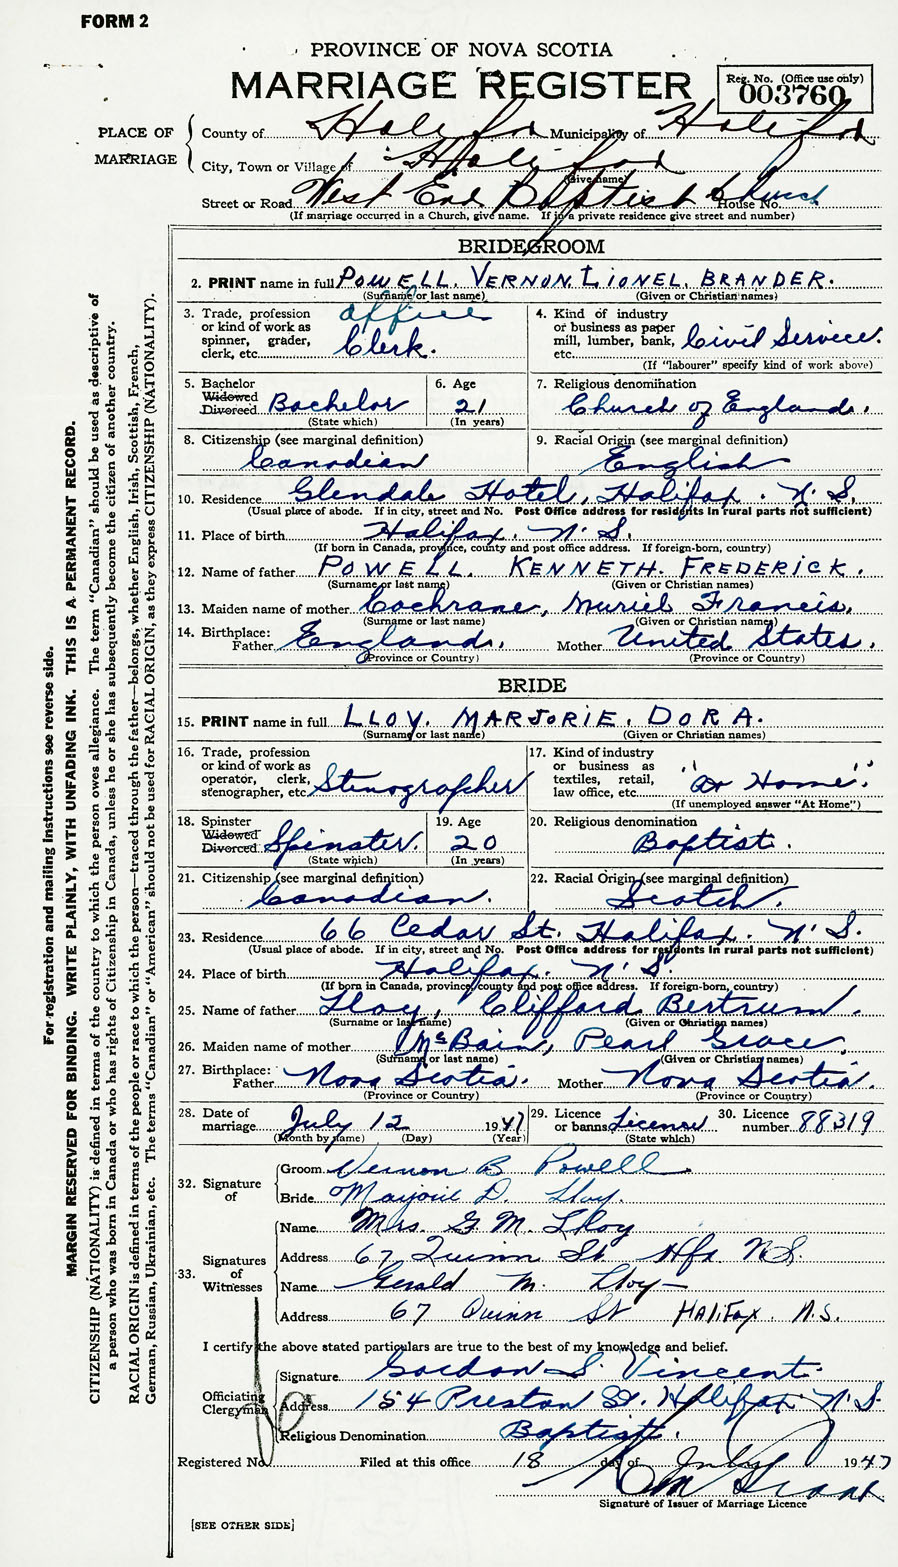 FORM 2
PROVINCE OF NOVA SCOTIA
MARRIAGE REGISTER
Reg. No. (Office use only)
003760
PLACE OF MARRIAGE
County of Halifax Municipality of Halifax
City, Town or Village of Halifax
(Give name)
Street or Road West End Baptist Church House No.
(If marriage occurred in a Church, give name. If in a private residence give street and number)
BRIDEGROOM
2. PRINT name in full POWELL, VERNON LIONEL BRANDER.
(Surname or last name) (Given or Christian names)
3. Trade, profession or kind of work as spinner, grader, clerk, etc. office Clerk.
4. Kind of industry or business as paper mill, lumber, bank, etc. Civil Service.
(If "labourer" specify kind of work above)
5. Bachelor Widowed Divorced Bachelor
(State which)
6. Age 21
(In years)
7. Religious denomination
Church of England.
8. Citizenship (see marginal definition)
Canadian
9. Racial Origin (see marginal definition)
English
10. Residence Glendale Hotel, Halifax. N.S.
(Usual place of abode. If in city, street and No. Post Office address for residents in rural parts not sufficient)
11. Place of birth Halifax. N.S.
(If born in Canada, province, county and post office address. If foreign-born, country)
12. Name of father POWELL. KENNETH. FREDERICK.
(Surname or last name) (Given or Christian names)
13. Maiden name of mother Cochrane, Muriel Francis.
(Surname or last name) (Given or Christian names)
14. Birthplace: Father England. Mother United States.
(Province or Country) (Province or Country)
BRIDE
15. PRINT name in full LLOY. MARJORIE. DORA.
(Surname or last name) (Given or Christian names)
16. Trade, profession or kind of work as operator, clerk, stenographer, etc. Stenographer
17. Kind of industry or business as textiles, retail, law office, etc. "At Home".
(If unemployed answer "At Home")
18. Spinster Widowed Divorced Spinster.
(State which)
19. Age 20
(In years)
20. Religious denomination
Baptist.
21. Citizenship (see marginal definition)
Canadian.
22. Racial Origin (see marginal definition)
Scotch.
23. Residence 66 Cedar St. Halifax. N.S.
(Usual place of abode. If in city, street and No. Post Office address for residents in rural parts not sufficient)
24. Place of birth Halifax. N.S.
(If born in Canada, province, county and post office address. If foreign-born, country)
25. Name of father Lloy, Clifford Bertrum.
(Surname or last name) (Given or Christian names)
26. Maiden name of mother McBain, Pearl Grace.
(Surname or last name) (Given or Christian names)
27. Birthplace: Father Nova Scotia. Mother Nova Scotia.
(Province or Country) (Province or Country)
28. Date of marriage July 12 1947
(Month by name) (Day) (Year)
29. Licence or banns License
(State which)
30. Licence number 88319
32. Signature of
Groom Vernon B Powell
Bride Marjorie D. Lloy.
33. Signatures of Witnesses
Name Mrs. G. M. Lloy
Address 67 Quinn St Hfx N.S.
Name Gerald M. Lloy
Address 67 Quinn St HALIFAX N.S.
I certify the above stated particulars are true to the best of my knowledge and belief.
Officiating Clergyman
Signature Gordon S. Vincent.
Address 154 Preston St. Halifax N.S.
Religious Denomination Baptist.
Registered No. Filed at this office 18 day of July 1947
Signature of Issuer of Marriage Licence
[SEE OTHER SIDE]
For registration and mailing instructions see reverse side.
MARGIN RESERVED FOR BINDING. WRITE PLAINLY, WITH UNFADING INK. THIS IS A PERMANENT RECORD.
CITIZENSHIP (NATIONALITY) is defined in terms of the country to which the person owes allegiance. The term "Canadian" should be used as descriptive of
a person who was born in Canada or who has rights of Citizenship in Canada, unless he or she has subsequently become the citizen of another country.
RACIAL ORIGIN is defined in terms of the people or race to which the person—traced through the father—belongs, whether English, Irish, Scottish, French,
German, Russian, Ukrainian, etc. The terms "Canadian" or "American" should not be used for RACIAL ORIGIN, as they express CITIZENSHIP (NATIONALITY).